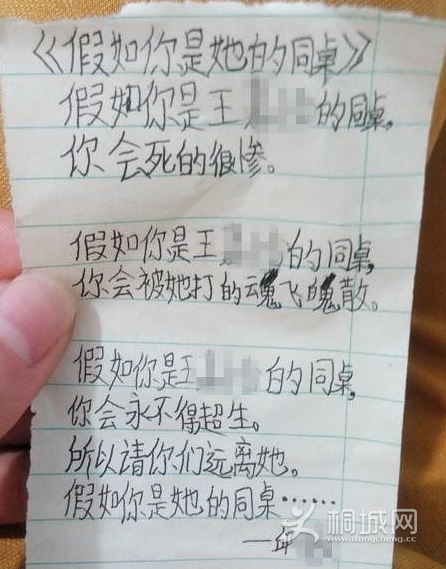 《假如你是她的同桌》
假如你是王 的同桌,
你会死的很惨。
假如你是王 的同桌,
你会被她打的魂飞魄散。
假如你是王 的同桌,
你会永不得超生。
所以请你们远离她。
假如你是她的同桌……
桐城网
www.itongcheng.cc